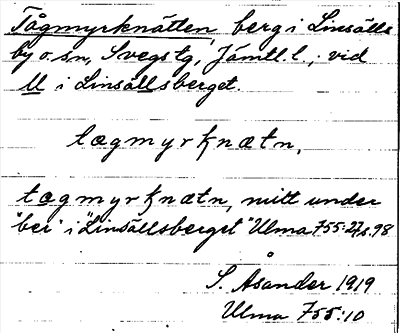 Tågmyrknätten, berg i Linsälls
by o. sn, Svegs tg, Jämtl. l., vid
ll i Linsällsberget.
tægmyrknætn,
tægmyrknætn, mitt under
"ber" i "Linsällsberget" Ulma 755:27, s. 98
S. Åsander 1919
Ulma 755:10